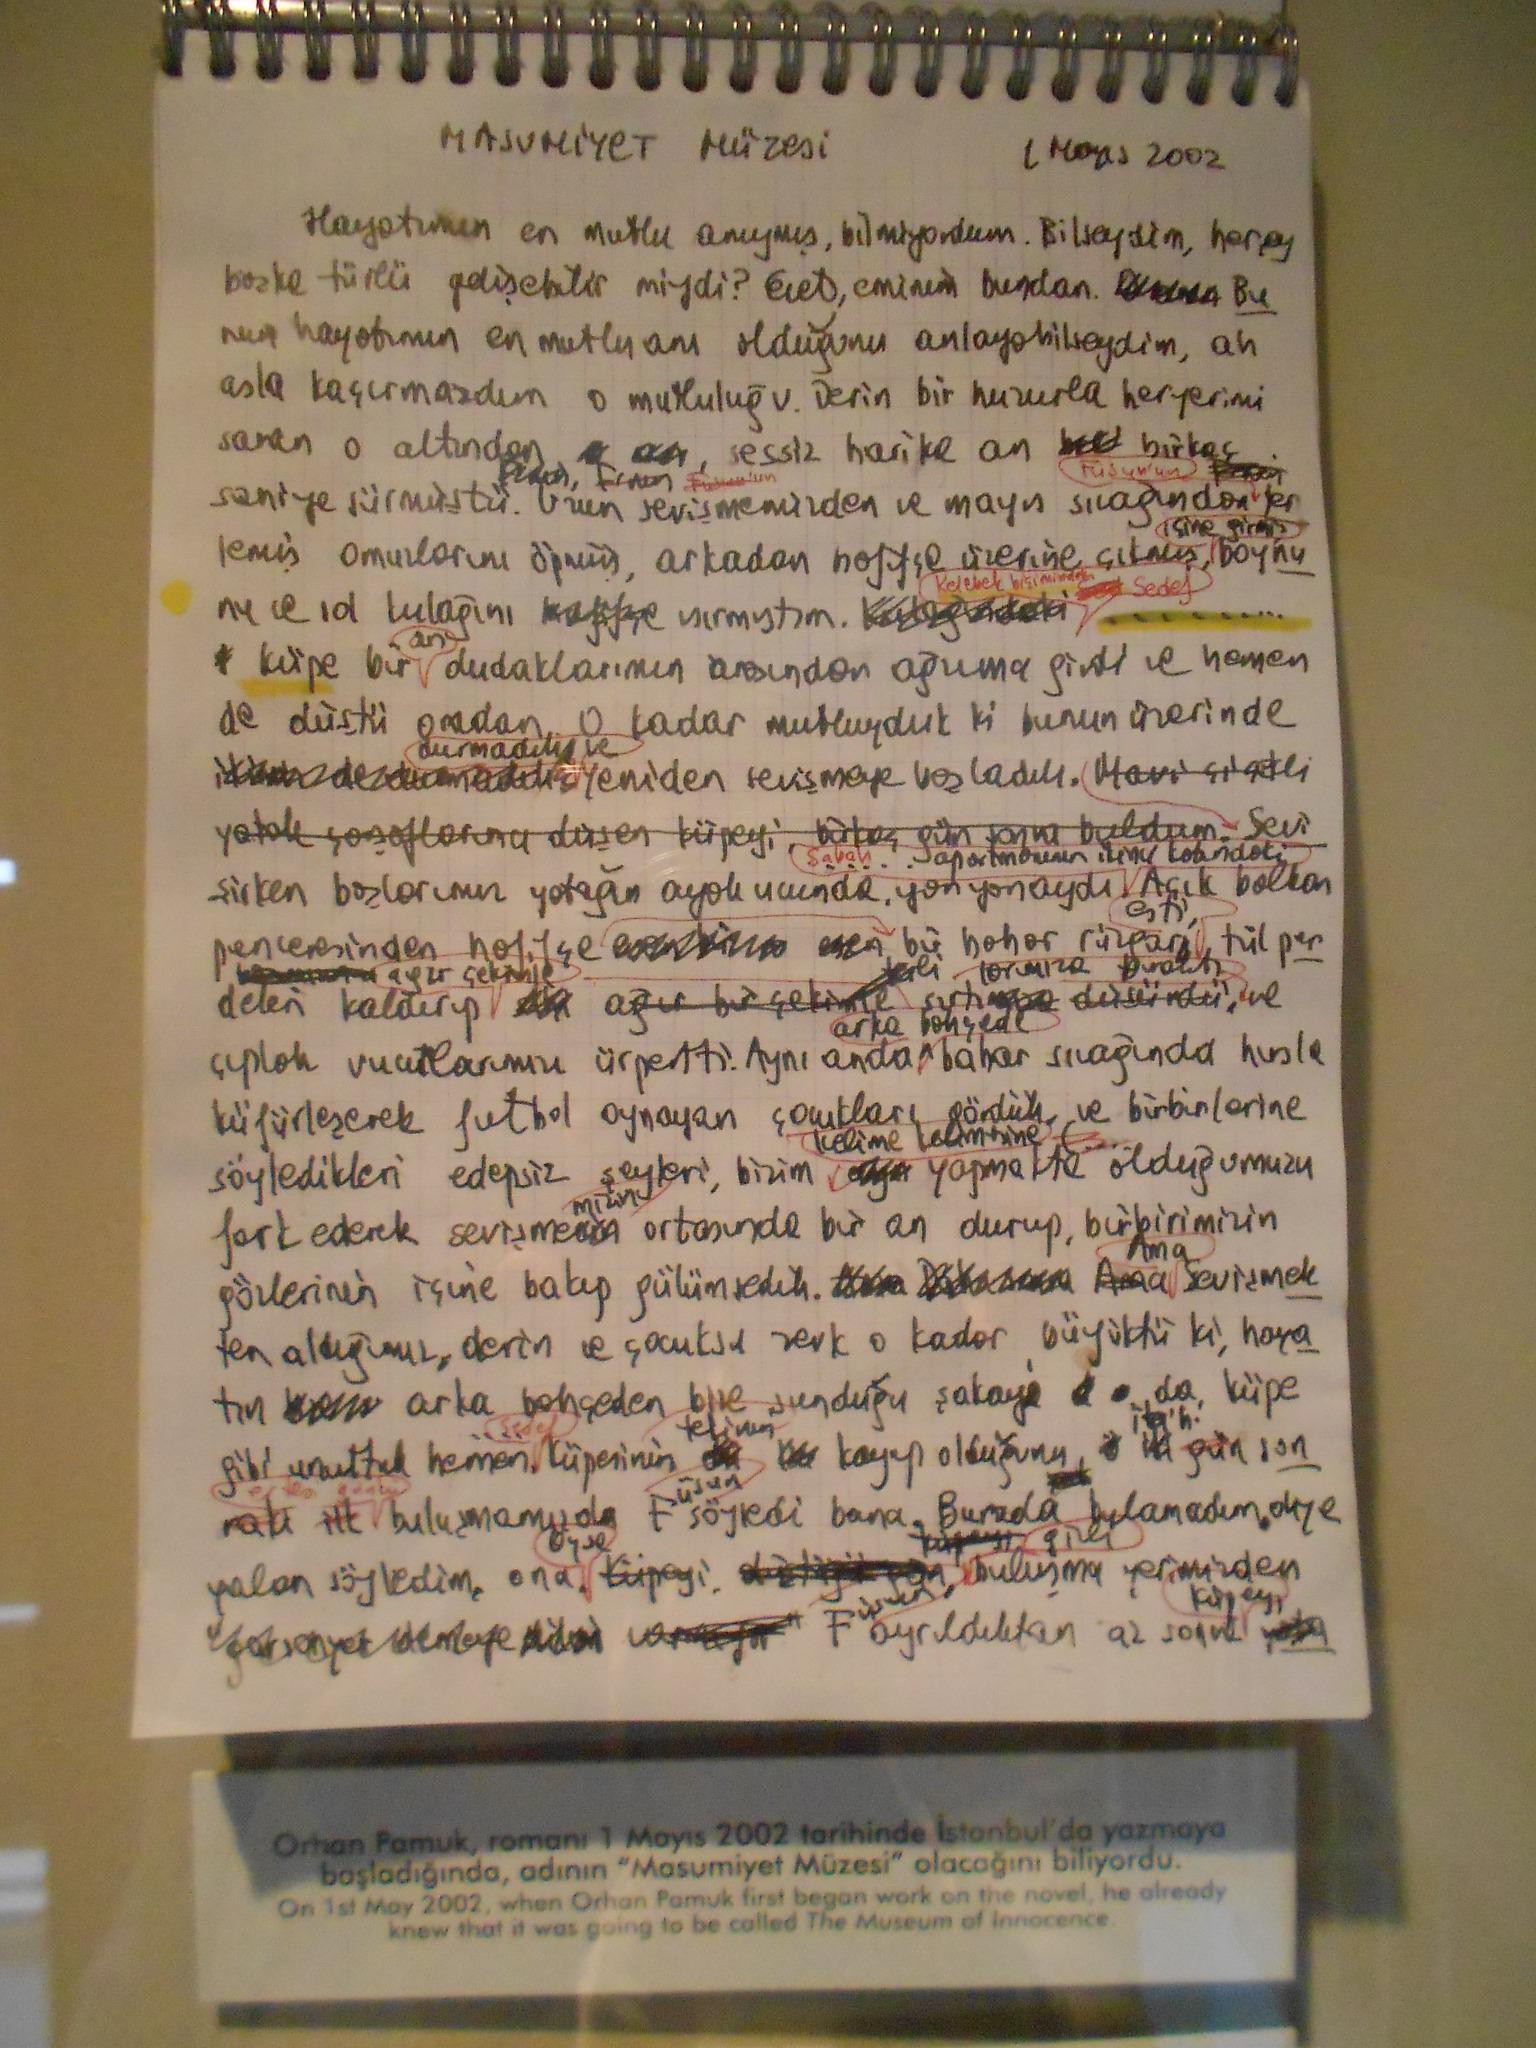 MASUMİYET MÜZESİ 1 Mayıs 2002
Hayatımın en mutlu anıymış, bilmiyordum. Bilseydim, herşey
başka türlü gelişebilir miydi? Evet, eminim bundan. Bu
nun hayatımın en mutlu anı olduğunu anlayabilseydim, ah
asla kaçırmazdım o mutluluğu. Derin bir huzurla heryerimi
saran o altından, sessiz harika an birkaç
Füsun'un
saniye sürmüştü. Uzun sevişmemizden ve mayıs sıcağından ter
içine girmiş
lemiş omuzlarını öpmüş, arkadan hafifçe üzerine çıkmış, boynu
Kelebek biçiminde Sedef
nu ve sol kulağını ısırmıştım.
an
küpe bir dudaklarımın arasından ağzıma girdi ve hemen
de düştü oradan. O kadar mutluyduk ki bunun üzerinde
durmadık ve
yeniden sevişmeye başladık. Mavi çiçekli
yatak çarşaflarına düşen küpeyi, birkaç gün sonra buldum. Sevi
apartmanının ikinci katındaki
şirken başlarımız yatağın ayak ucunda, yanyanaydı. Açık balkon
esti,
penceresinden hafifçe bir bahar rüzgarı, tül per
ağır çekimle terli larımıza bıraktı
deleri kaldırıp ağır bir çekimle düşürdü, ve
arka bahçede
çıplak vucutlarımızı ürpertti. Aynı anda bahar sıcağında hırsla
küfürleşerek futbol oynayan çocukları gördük, ve birbirlerine
kelime kelimesine
söyledikleri edepsiz şeyleri, bizim yapmakta olduğumuzu
mizin
fark ederek sevişme ortasında bir an durup, birbirimizin
Ama
gözlerinin içine bakıp gülümsedik. Ama Sevişmek
ten aldığımız, derin ve çocuksu zevk o kadar büyüktü ki, haya
tın arka bahçeden bize sunduğu şakayı da, küpe
tekinin
gibi unuttuk hemen. Küpesinin kayıp olduğunu, iki gün son
üsun
raki ilk buluşmamızda F söyledi bana. Burada bulamadım diye
Oysa gizli
yalan söyledim, ona. Küpeyi, buluşma yerimizden
üsun küpeyi
F ayrıldıktan az sonra
Orhan Pamuk, romanı 1 Mayıs 2002 tarihinde İstanbul'da yazmaya
başladığında, adının "Masumiyet Müzesi" olacağını biliyordu.
On 1st May 2002, when Orhan Pamuk first began work on the novel, he already
knew that it was going to be called The Museum of Innocence.